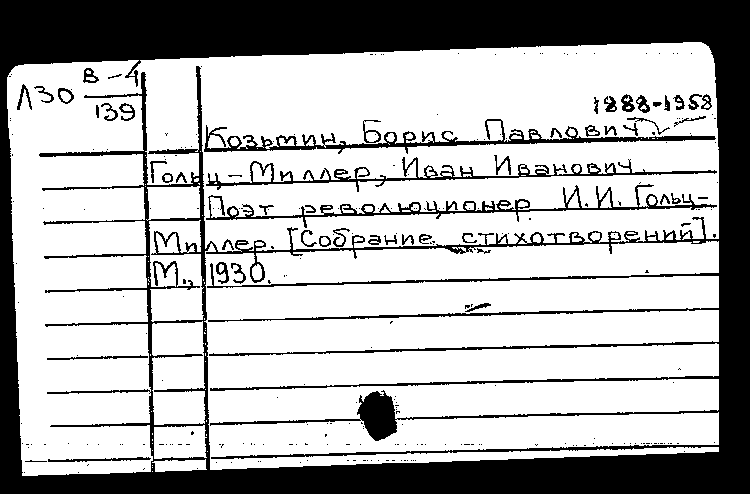 Л30 В-4/139
1888-1958
Козьмин, Борис Павлович.
Гольц-Миллер, Иван Иванович.
Поэт революционер И.И. Гольц-
Миллер. [Собрание стихотворений].
М., 1930.